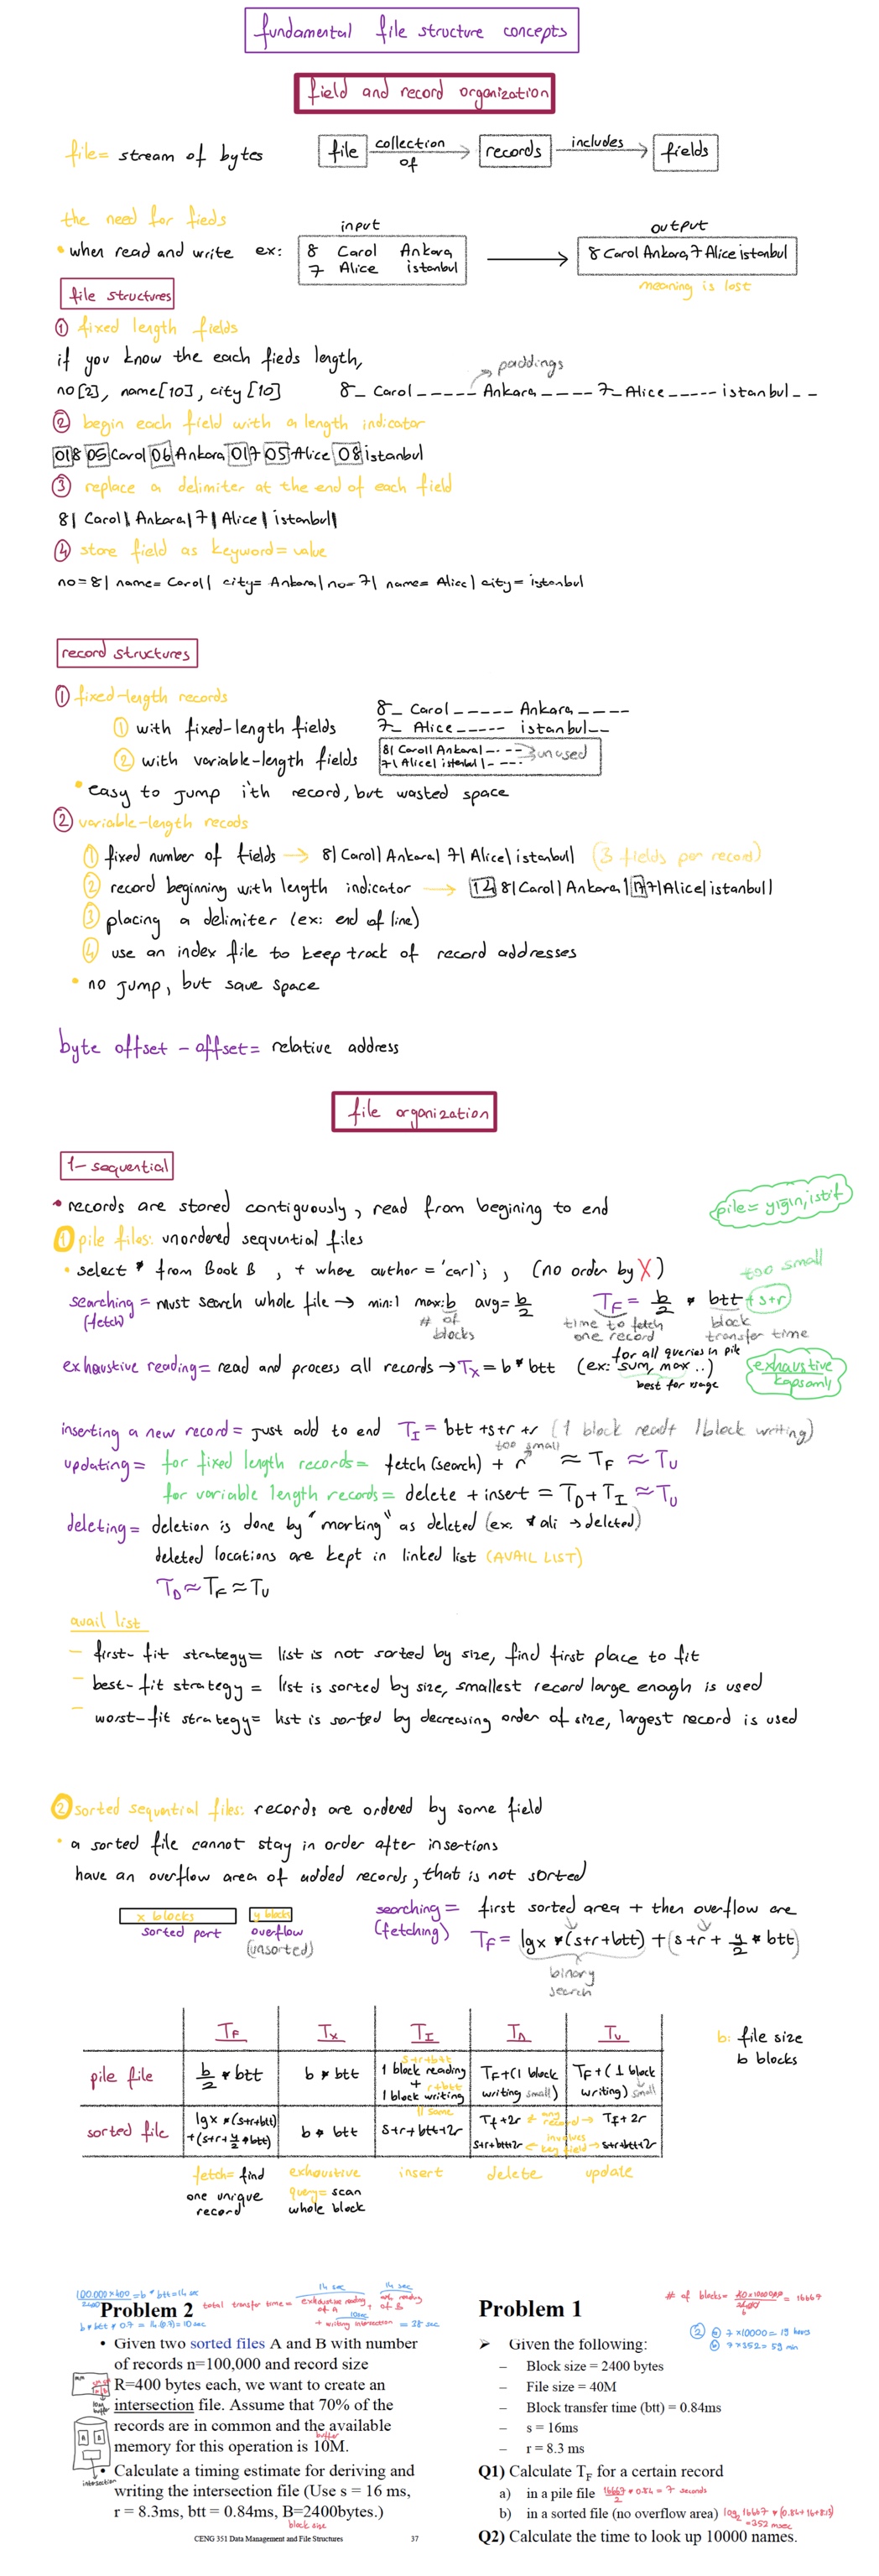 fundamental file structure concepts
field and record organization
file= stream of bytes
file collection of records includes fields
the need for fieds
input
output
• when read and write ex:
8 Carol Ankara
7 Alice istanbul
8 Carol Ankara, 7 Alice istanbul
meaning is lost
file structures
① fixed length fields
if you know the each fieds length,
paddings
no[2], name[10], city [10]
8_ Carol _____ Ankara ____ 7_ Alice _____ istanbul _ _
② begin each field with a length indicator
018 05 Carol 06 Ankara 017 05 Alice 08 istanbul
③ replace a delimiter at the end of each field
8| Carol| Ankara| 7| Alice| istanbul|
④ store field as keyword = value
no=8| name= Carol| city= Ankara| no= 7| name= Alice| city= istanbul
record structures
① fixed-length records
8_ Carol _____ Ankara ____
① with fixed-length fields
7_ Alice _____ istanbul__
② with variable-length fields
8| Carol| Ankara| _ . _ _
7| Alice| istanbul| _ _ _
unused
• easy to jump i'th record, but wasted space
② variable-length recods
① fixed number of fields → 8| Carol| Ankara| 7| Alice| istanbul| (3 fields per record)
② record beginning with length indicator → 8| Carol| Ankara| 7| Alice| istanbul|
③ placing a delimiter (ex: end of line)
④ use an index file to keep track of record addresses
• no jump, but save space
byte offset - offset= relative address
file organization
1- sequential
• records are stored contiguously, read from begining to end
pile= yığın, istif
① pile files: unordered sequential files
• select * from Book B , + where author = 'carl'; , (no order by X)
too small
searching = must search whole file → min:1 max:b avg= b/2
(fetch)
# of blocks
TF= b/2 * btt + s+r
time to fetch one record
block transfer time
for all queries in pile
exhaustive reading= read and process all records → Tx = b * btt (ex: sum, max ..)
best for usage
exhaustive kapsamlı
inserting a new record= just add to end TI = btt +s+r +r (1 block read+ 1 block writing)
too small
updating = for fixed length records= fetch (search) + r ≈ TF ≈ TU
for variable length records= delete + insert = TD+ TI ≈ TU
deleting= deletion is done by "marking" as deleted (ex. * ali → deleted)
deleted locations are kept in linked list (AVAIL LIST)
TD ≈ TF ≈ TU
avail list
- first- fit strategy= list is not sorted by size, find first place to fit
- best- fit strategy = list is sorted by size, smallest record large enough is used
- worst-fit strategy= list is sorted by decreasing order of size, largest record is used
② sorted sequential files: records are ordered by some field
• a sorted file cannot stay in order after insertions
have an overflow area of added records, that is not sorted
x blocks
sorted part
y blocks
overflow
(unsorted)
searching = first sorted area + then overflow are
(fetching)
TF= lgx *(s+r+btt) +(s+r+ y/2 * btt)
binary search
TF Tx TI TD TU
b: file size
b blocks
pile file
b/2 * btt
b * btt
s+r+btt
1 block reading
+ r+btt
1 block writing
TF+(1 block writing small)
TF+(1 block writing) small
sorted file
lgx *(s+r+btt)
+(s+r+ y/2 *btt)
b * btt
// same
s+r+btt+2r
TF+2r ← any record → TF+2r
s+r+btt+2r ← involves key field → s+r+btt+2r
fetch= find one unique record
exhaustive query= scan whole block
insert
delete
update
100.000x400/2400 =b * btt=14 sec
b * btt * 0.7 = 14.(0.7)=10 sec
Problem 2
total transfer time= exhaustive reading of A + reading of B
14 sec
14 sec
+ writing intersection = 28 sec
10sec
• Given two sorted files A and B with number of records n=100,000 and record size
R=400 bytes each, we want to create an
intersection file. Assume that 70% of the
records are in common and the available
buffer
memory for this operation is 10M.
• Calculate a timing estimate for deriving and
writing the intersection file (Use s = 16 ms,
r = 8.3ms, btt = 0.84ms, B=2400bytes.)
block size
intersection
A B
CENG 351 Data Management and File Structures 37
Problem 1
# of blocks= = 16667
② ⓐ 7 x10000= 19 hours
ⓑ 7 x352= 59 min
➢ Given the following:
– Block size = 2400 bytes
– File size = 40M
– Block transfer time (btt) = 0.84ms
– s = 16ms
– r = 8.3 ms
Q1) Calculate TF for a certain record
a) in a pile file 16667/2 * 0.84 = 7 seconds
b) in a sorted file (no overflow area) log2 16667 * (0.84+16+8.3)
=352 msec
Q2) Calculate the time to look up 10000 names.